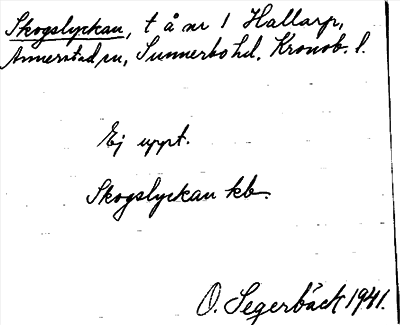 Skogslyckan, t å nr 1 Hallarp,
Annerstad sn, Sunnerbo hd, Kronob. l.
Ej uppt.
Skogslyckan kb.
O. Segerbäck 1941.